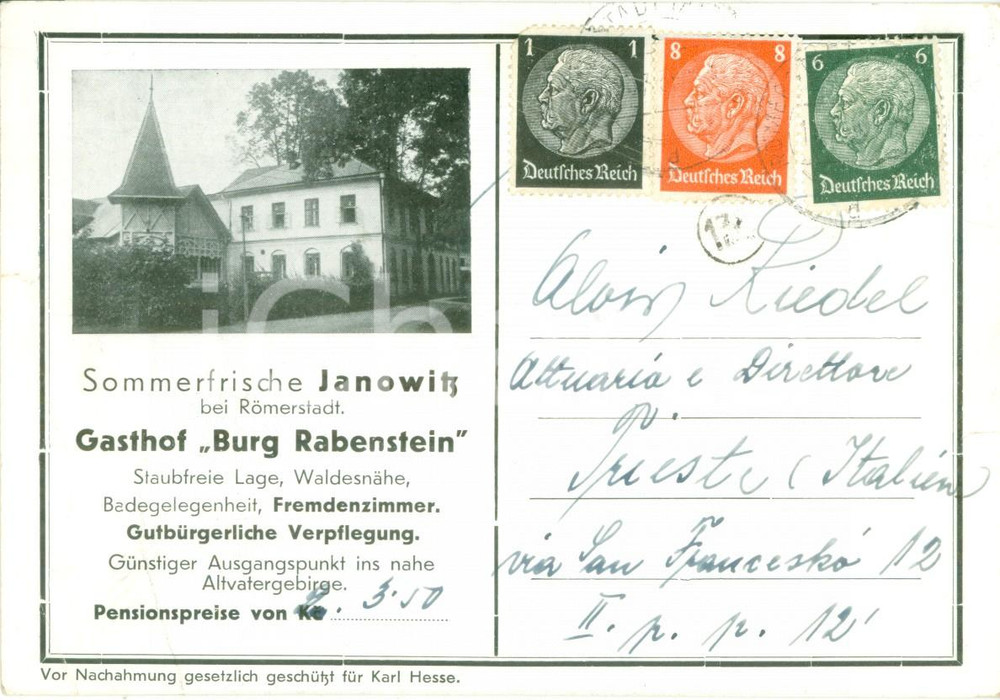 1 1
Deutsches Reich
8 8
Deutsches Reich
6 6
Deutsches Reich
Sommerfrische Janowitz
bei Römerstadt.
Gasthof „Burg Rabenstein"
Staubfreie Lage, Waldesnähe,
Badegelegenheit, Fremdenzimmer.
Gutbürgerliche Verpflegung.
Günstiger Ausgangspunkt ins nahe
Altvatergebirge.
Pensionspreise von Kč 3·50
Vor Nachahmung gesetzlich geschützt für Karl Hesse.
Alois Riedel
Attuario e Direttore
p.
Trieste (Italien)
via San Franceskó 12
II. p. p. 12'